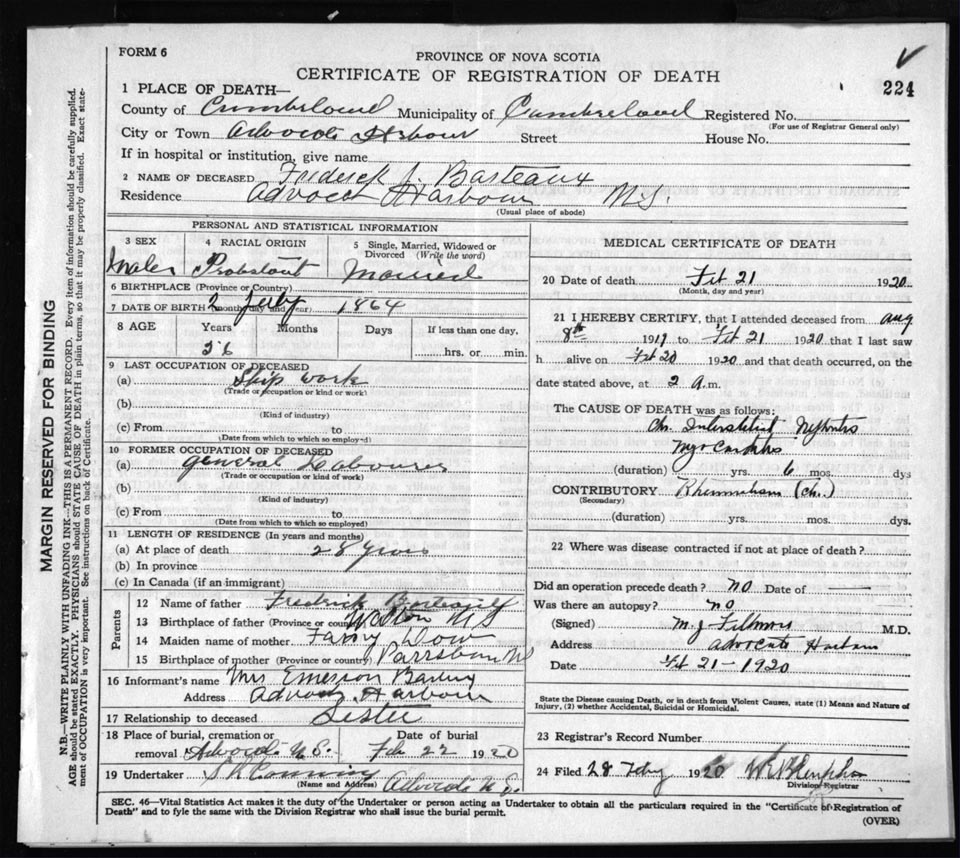 FORM 6
PROVINCE OF NOVA SCOTIA
CERTIFICATE OF REGISTRATION OF DEATH
224
1 PLACE OF DEATH—
County of Cumberland Municipality of Cumberland Registered No.
(For use of Registrar General only)
City or Town Advocate Harbour Street House No.
If in hospital or institution, give name
2 NAME OF DECEASED Frederick J. Basteaux
Residence Advocate Harbour N.S.
(Usual place of abode)
PERSONAL AND STATISTICAL INFORMATION
3 SEX 4 RACIAL ORIGIN 5 Single, Married, Widowed or Divorced (Write the word)
Male Married
6 BIRTHPLACE (Province or Country)
7 DATE OF BIRTH (month, day and year) 2 July 1864
8 AGE Years Months Days If less than one day,
56 hrs. or min.
9 LAST OCCUPATION OF DECEASED
(a) Ship work
(Trade or occupation or kind or work)
(b)
(Kind of industry)
(c) From to
(Date from which to which so employed)
10 FORMER OCCUPATION OF DECEASED
(a) general Labourer
(Trade or occupation or kind of work)
(b)
(Kind of industry)
(c) From to
(Date from which to which so employed)
11 LENGTH OF RESIDENCE (In years and months)
(a) At place of death 28 years
(b) In province
(c) In Canada (if an immigrant)
Parents
12 Name of father Fredrick
13 Birthplace of father (Province or country) Walton N S
14 Maiden name of mother Fanny Dow
15 Birthplace of mother (Province or country) Parrsboro N
16 Informant's name Mrs Emerson
Address Advocate Harbour
17 Relationship to deceased Sister
18 Place of burial, cremation or removal Advocate N.S. Date of burial Feb 22 1920
19 Undertaker Advocate N.S.
(Name and Address)
MEDICAL CERTIFICATE OF DEATH
20 Date of death Feb 21 1920
(Month, day and year)
21 I HEREBY CERTIFY, that I attended deceased from Aug
8th 1919 to Feb 21 1920 that I last saw
h alive on Feb 20 1920 and that death occurred, on the
date stated above, at 2 a.m.
The CAUSE OF DEATH was as follows:
Ch. Interstitial Nephritis
Myocarditis
(duration) yrs. 6 mos. dys
CONTRIBUTORY Rheumatism (ch.)
(Secondary)
(duration) yrs. mos. dys.
22 Where was disease contracted if not at place of death?
Did an operation precede death? no Date of —
Was there an autopsy? no
(Signed) M.J. Fillmore M.D.
Address Advocate Harbour
Date Feb 21 - 1920
State the Disease causing Death, or in death from Violent Causes, state (1) Means and Nature of
Injury, (2) whether Accidental, Suicidal or Homicidal.
23 Registrar's Record Number
24 Filed 28 Feby 1920
Division Registrar
SEC. 46—Vital Statistics Act makes it the duty of the Undertaker or person acting as Undertaker to obtain all the particulars required in the "Certificate of Registration of
Death" and to fyle the same with the Division Registrar who shall issue the burial permit.
(OVER)
MARGIN RESERVED FOR BINDING
N.B.—WRITE PLAINLY WITH UNFADING INK—THIS IS A PERMANENT RECORD. Every item of information should be carefully supplied.
AGE should be stated EXACTLY. PHYSICIANS should STATE CAUSE OF DEATH in plain terms, so that it may be properly classified. Exact state-
ment of OCCUPATION is very important. See instructions on back of Certificate.